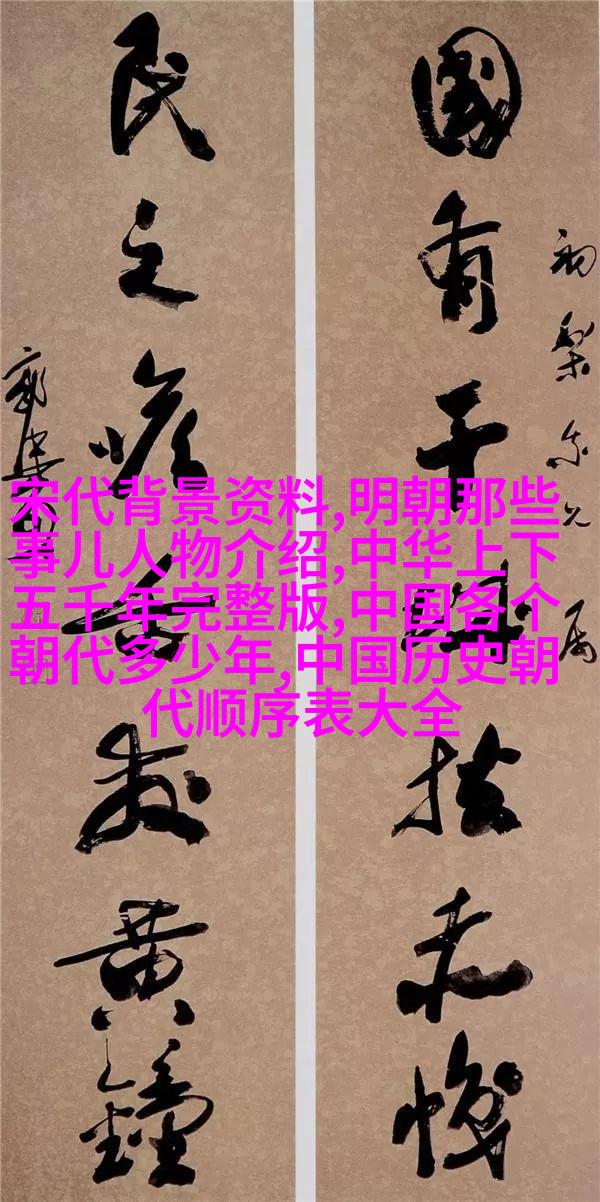 國有干
扶赤幟
民之喉舌
發黄鐘
宋代背景资料,明朝那些
事儿人物介绍,中华上下
五千年完整版,中国各个
朝代多少年,中国历史朝
代顺序表大全